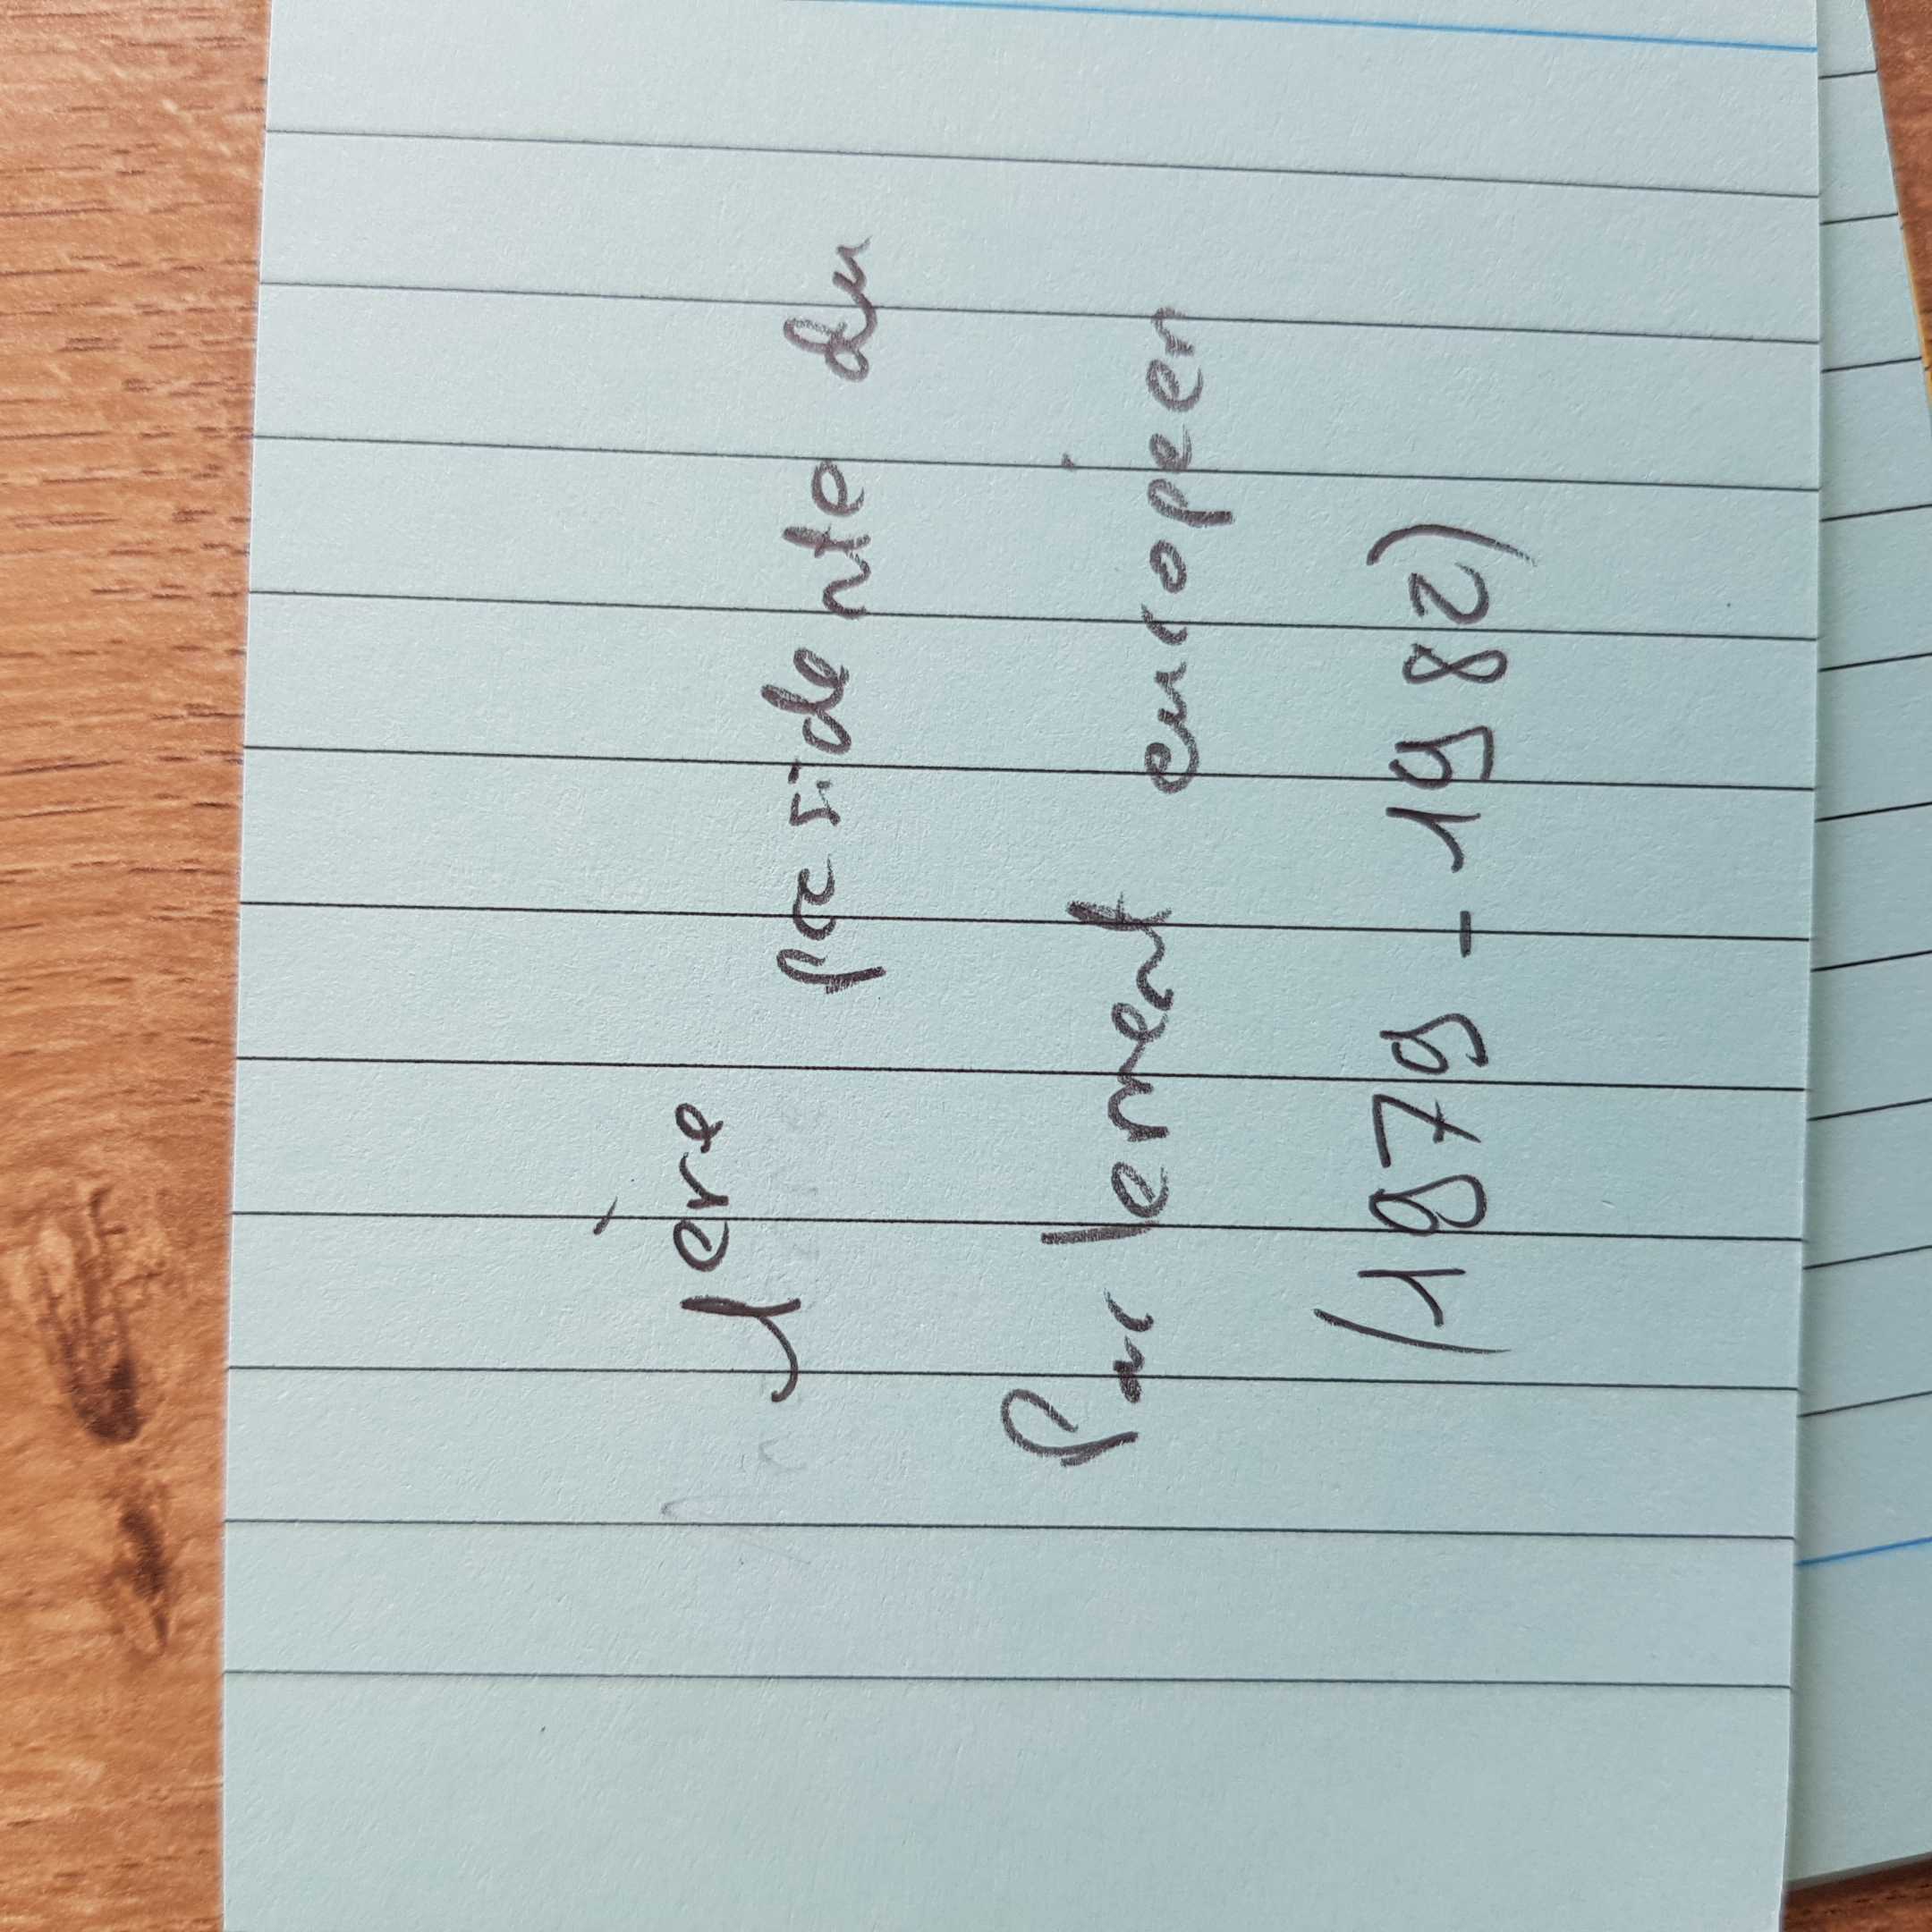 1ère présidente du
Parlement européen
(1979-1982)